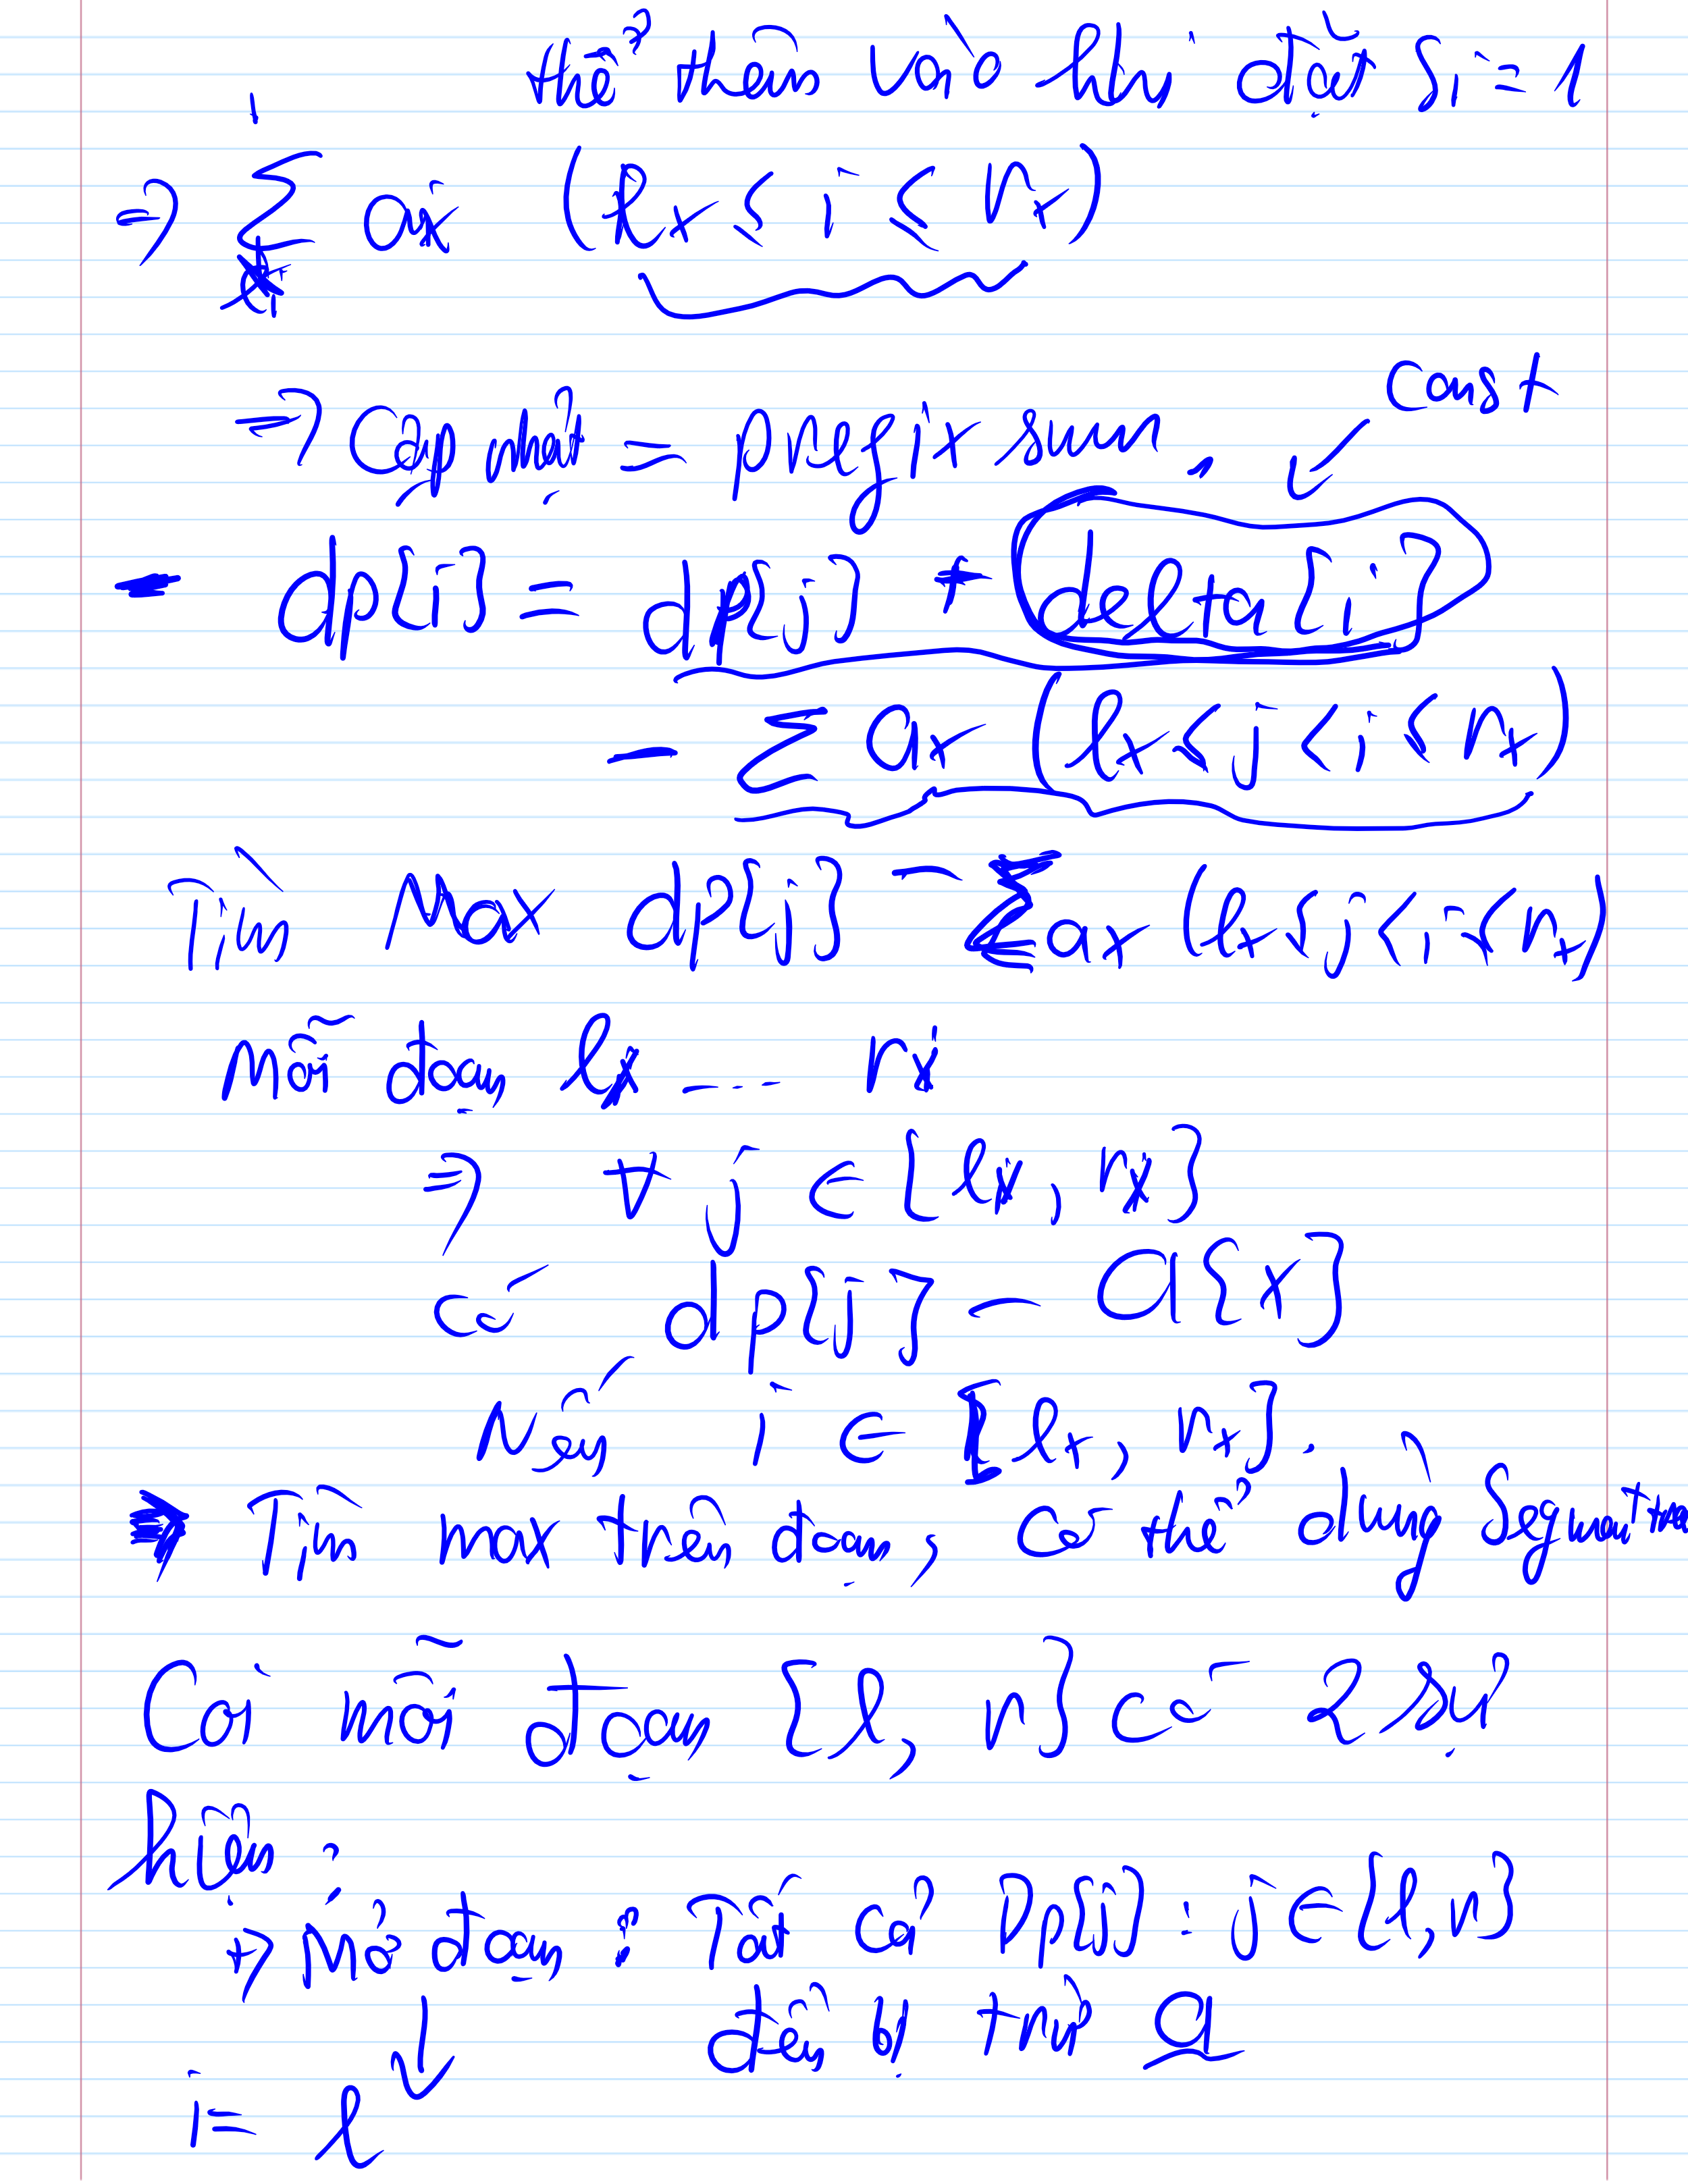 thể thêm vào khi đặt Si = 1
=> ∑ ax (lx ≤ i ≤ rx)
const
=> Cập nhật = prefix sum.
- dp[i] = dp[j] + delta[i]
- ∑ ax (lx ≤ j < i ≤ rx)
Tìm Max dp[j] - ∑ax (lx ≤ j < i ≤ rx)
Mỗi đoạn lx .... rx
=> ∀ j ∈ [lx, rx]
có dp[j] - a[x]
Nếu i ∈ [lx, rx].
=> Tìm max trên đoạn, có thể dùng Segment tree
Coi mỗi đoạn [l, r] có 2 sự
kiện :
+> Mở đoạn : Tất cả Dp[j] : j ∈ [l, r]
đều bị trừ a
i = l